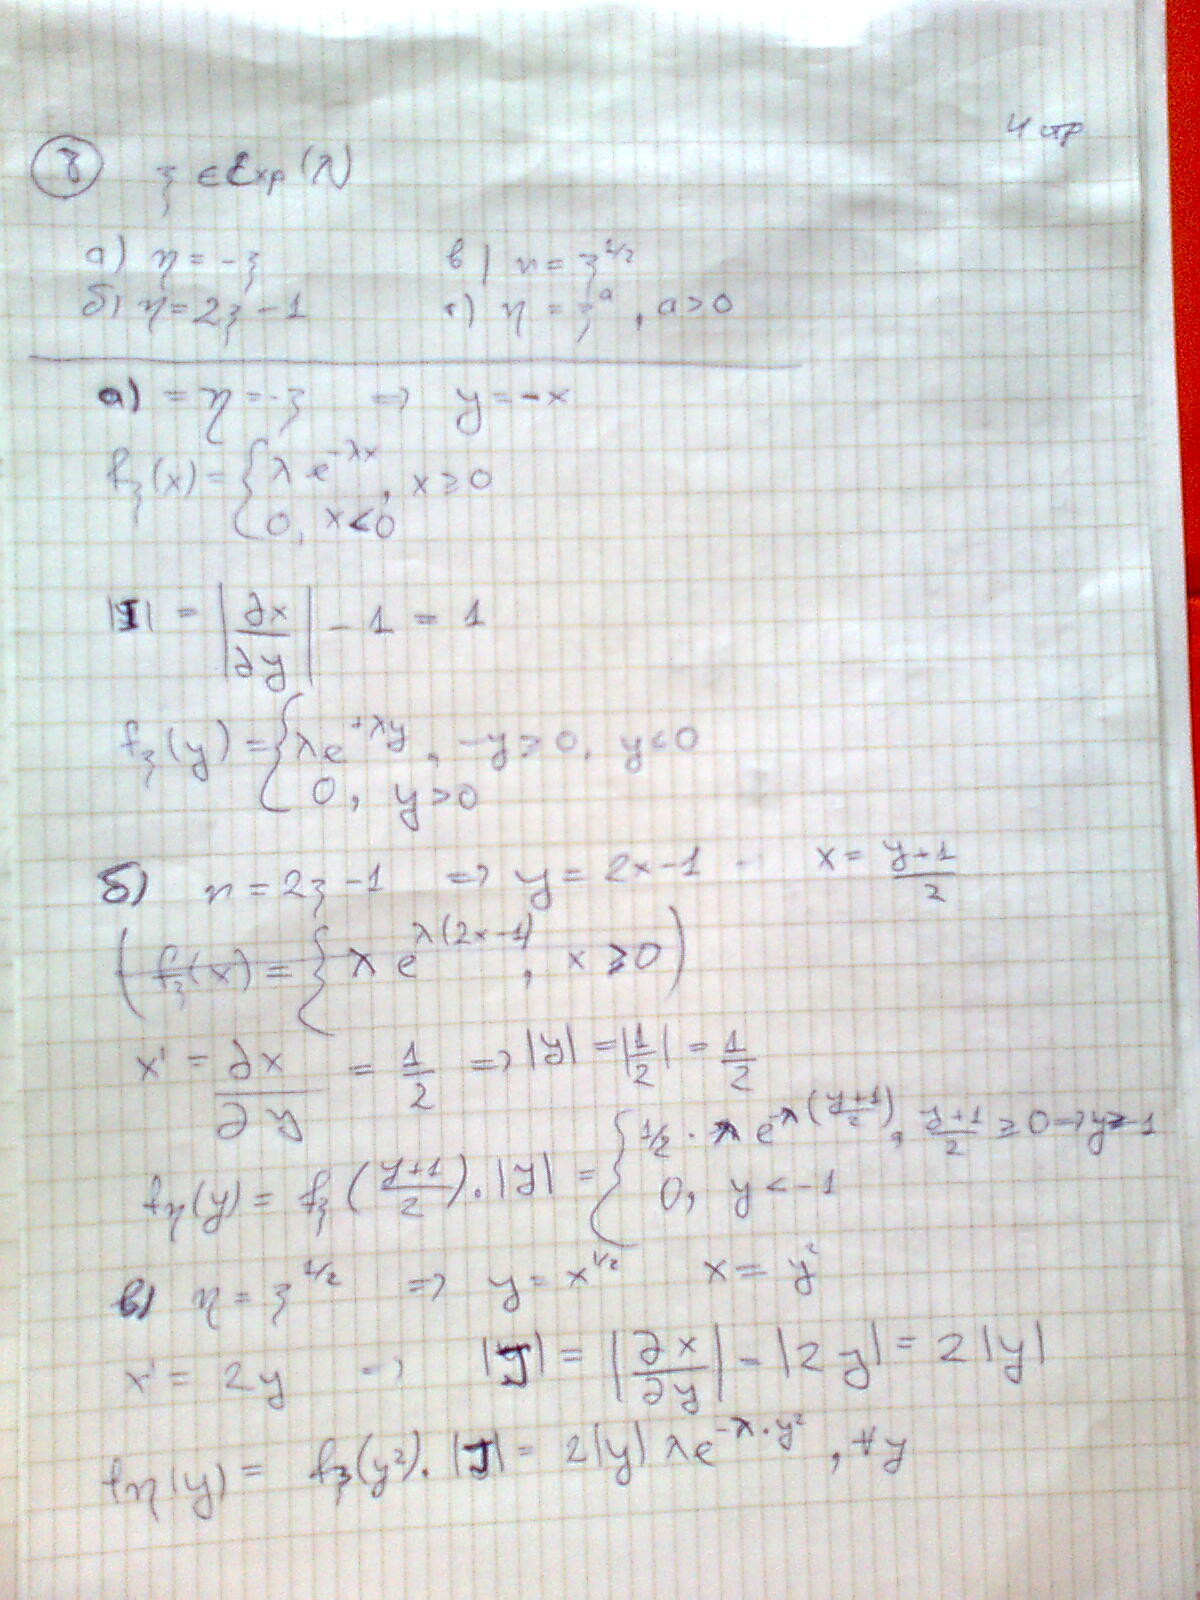 4 стр
8 ξ ∈ Exp(λ)
а) η = -ξ в) η = ξ^1/2
б) η = 2ξ - 1 г) η = ξ^a, a > 0
а) = η = -ξ ⇒ y = -x
fξ(x) = { λ e^-λx, x ≥ 0
0, x < 0
|J| = |∂x/∂y| - 1 = 1
fξ(y) = { λe^+λy, -y ≥ 0, y < 0
0, y > 0
б) η = 2ξ - 1 ⇒ y = 2x - 1 - x = y+1/2
(fξ(x) = { λ e^λ(2x-1), x ≥ 0)
x' = ∂x/∂y = 1/2 ⇒ |y| = |1/2| = 1/2
fη(y) = fξ(y+1/2).|y| = { 1/2 . λ e^-λ(y+1/2), y+1/2 ≥ 0 → y ≥ -1
0, y < -1
в) η = ξ^1/2 ⇒ y = x^1/2 x = y^2
x' = 2y ⇒ |J| = |∂x/∂y| = |2y| = 2|y|
fη(y) = fξ(y^2).|J| = 2|y| λe^-λ.y^2, ∀y